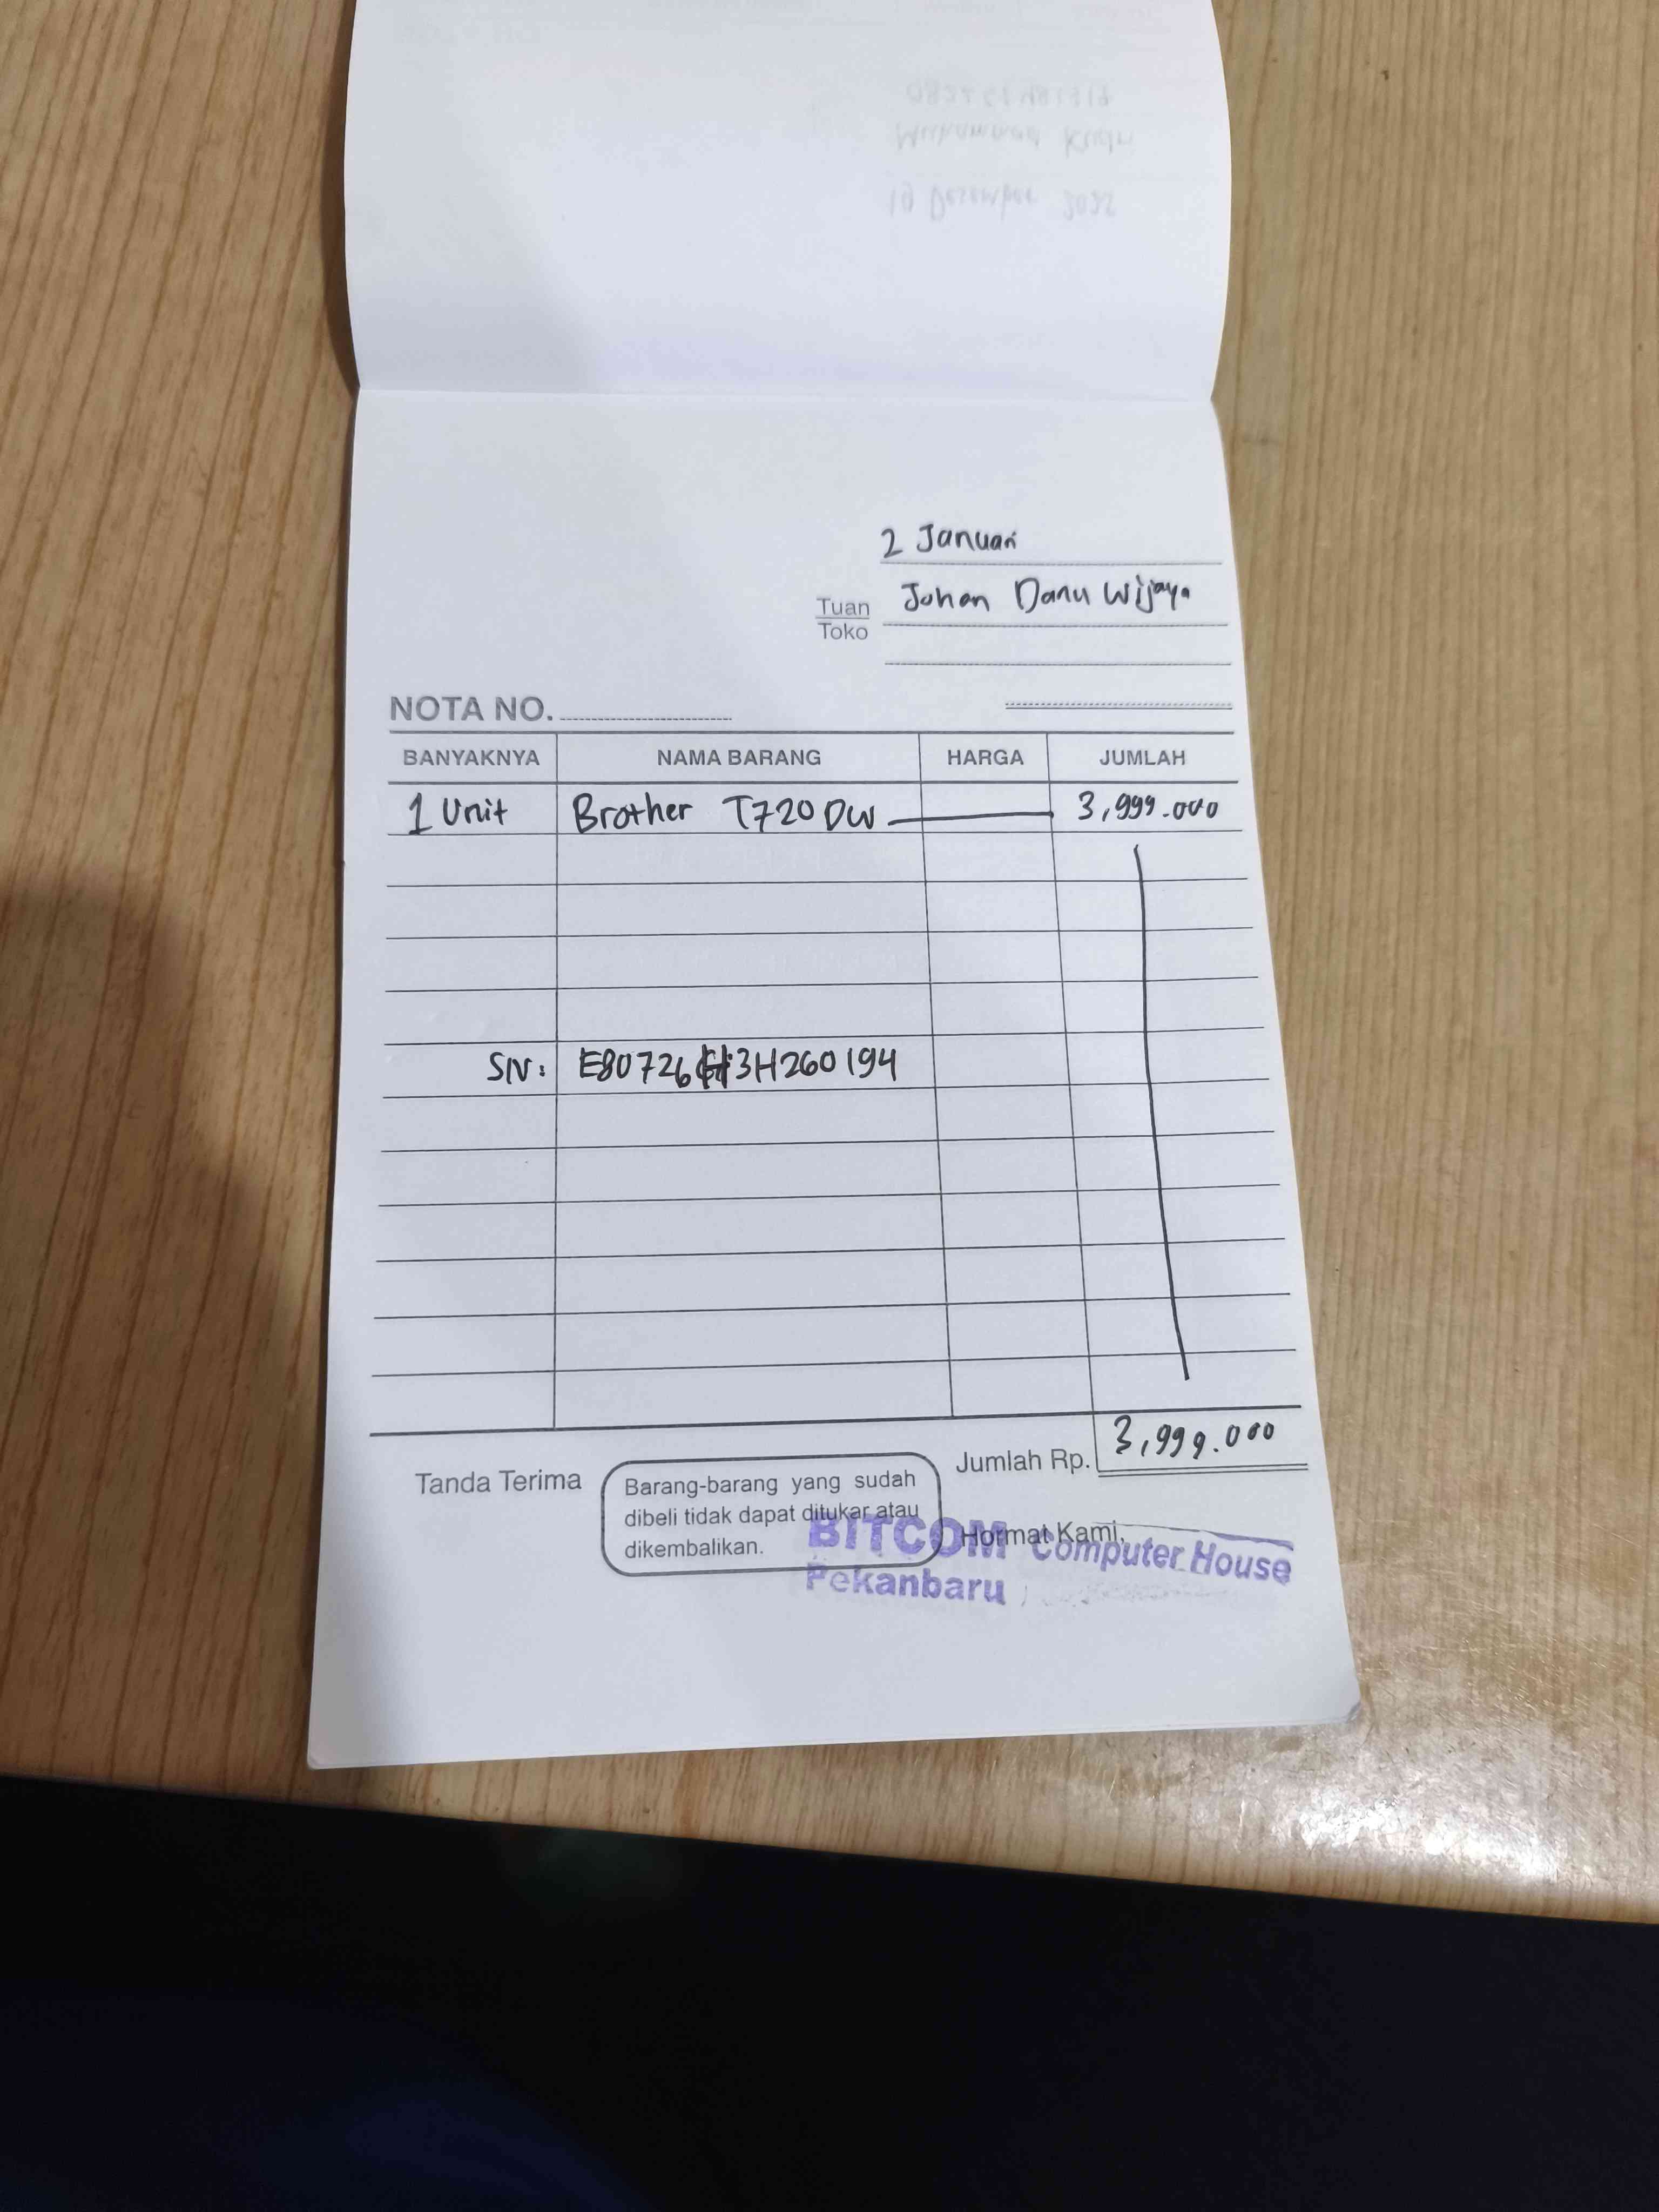 2 Januari
Tuan Johan Danu Wijaya
Toko
NOTA NO.
BANYAKNYA NAMA BARANG HARGA JUMLAH
1 Unit Brother T720 DW 3,999.000
S/N: E80726H3H260194
Jumlah Rp. 3,999.000
Tanda Terima
Barang-barang yang sudah
dibeli tidak dapat ditukar atau
dikembalikan.
Hormat Kami,
BITCOM Computer House
Pekanbaru